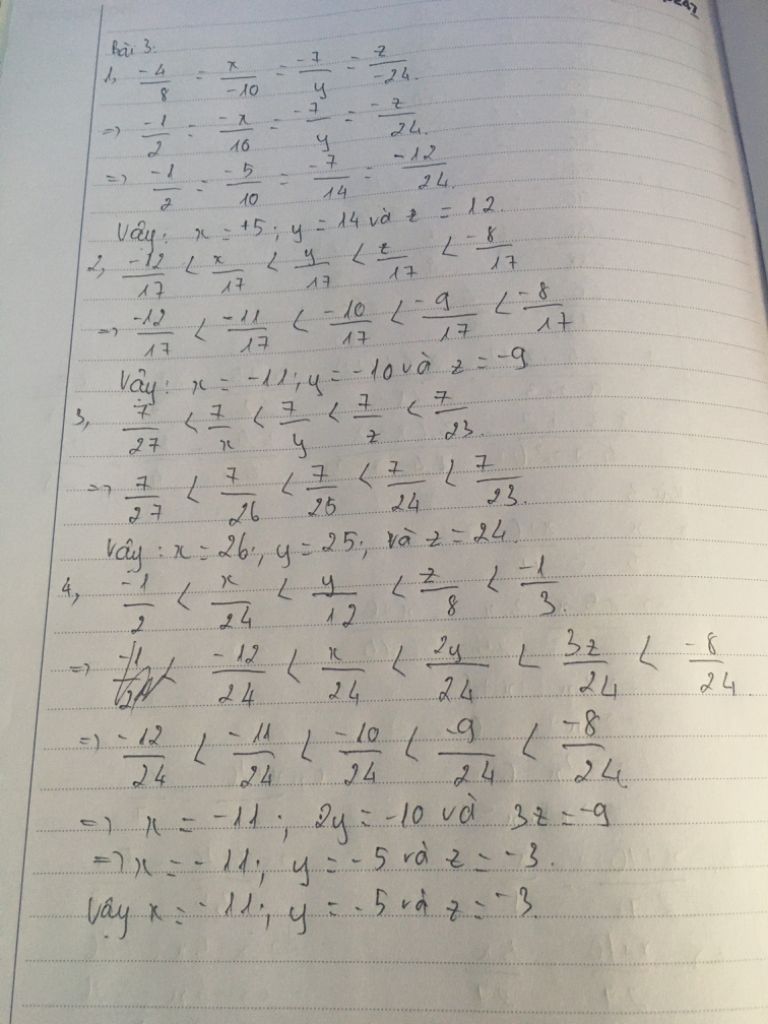 Bài 3:
1, -4/8 = x/-10 = -7/y = z/-24.
=> -1/2 = -x/10 = -7/y = -z/24.
=> -1/2 = -5/10 = -7/14 = -12/24.
Vậy: x = +5; y = 14 và z = 12.
2, -12/17 < x/17 < y/17 < z/17 < -8/17
=> -12/17 < -11/17 < -10/17 < -9/17 < -8/17
Vậy: x = -11; y = -10 và z = -9
3, 7/27 < 7/x < 7/y < 7/z < 7/23.
=> 7/27 < 7/26 < 7/25 < 7/24 < 7/23.
Vây: x = 26; y = 25; và z = 24.
4, -1/2 < x/24 < y/12 < z/8 < -1/3.
=> -12/24 < x/24 < 2y/24 < 3z/24 < -8/24.
=> -12/24 < -11/24 < -10/24 < -9/24 < -8/24
=> x = -11; 2y = -10 và 3z = -9
=> x = -11; y = -5 và z = -3.
Vậy x = -11; y = -5 và z = -3.